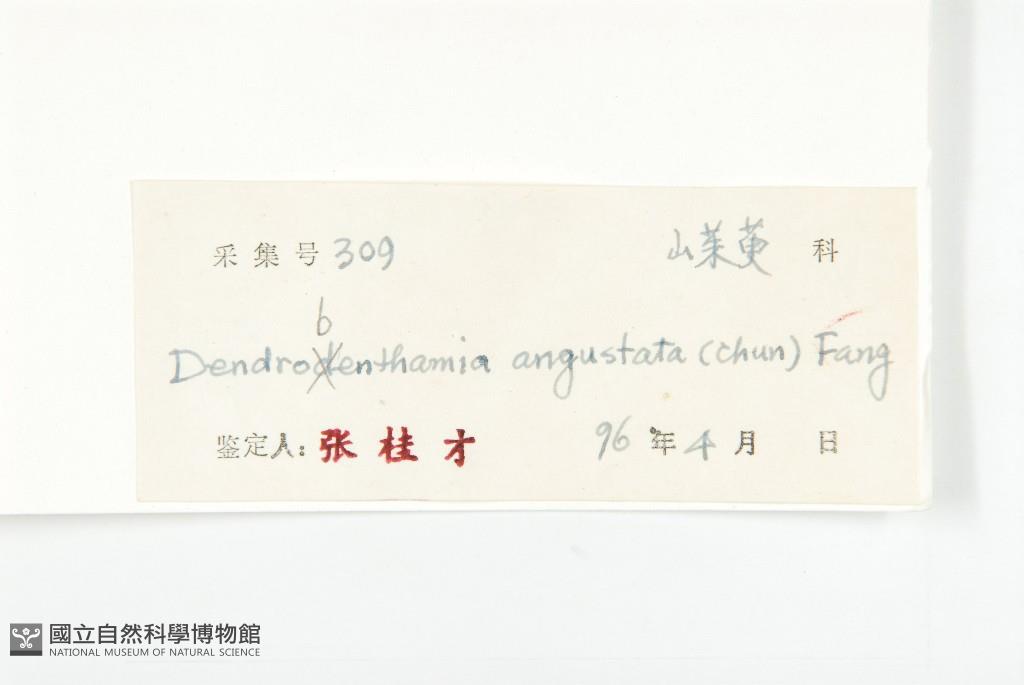 采集号 309 山茱萸 科
b
Dendrodenthamia angustata (chun) Fang
鉴定人: 张桂才 96 年 4 月 日
國立自然科學博物館
NATIONAL MUSEUM OF NATURAL SCIENCE